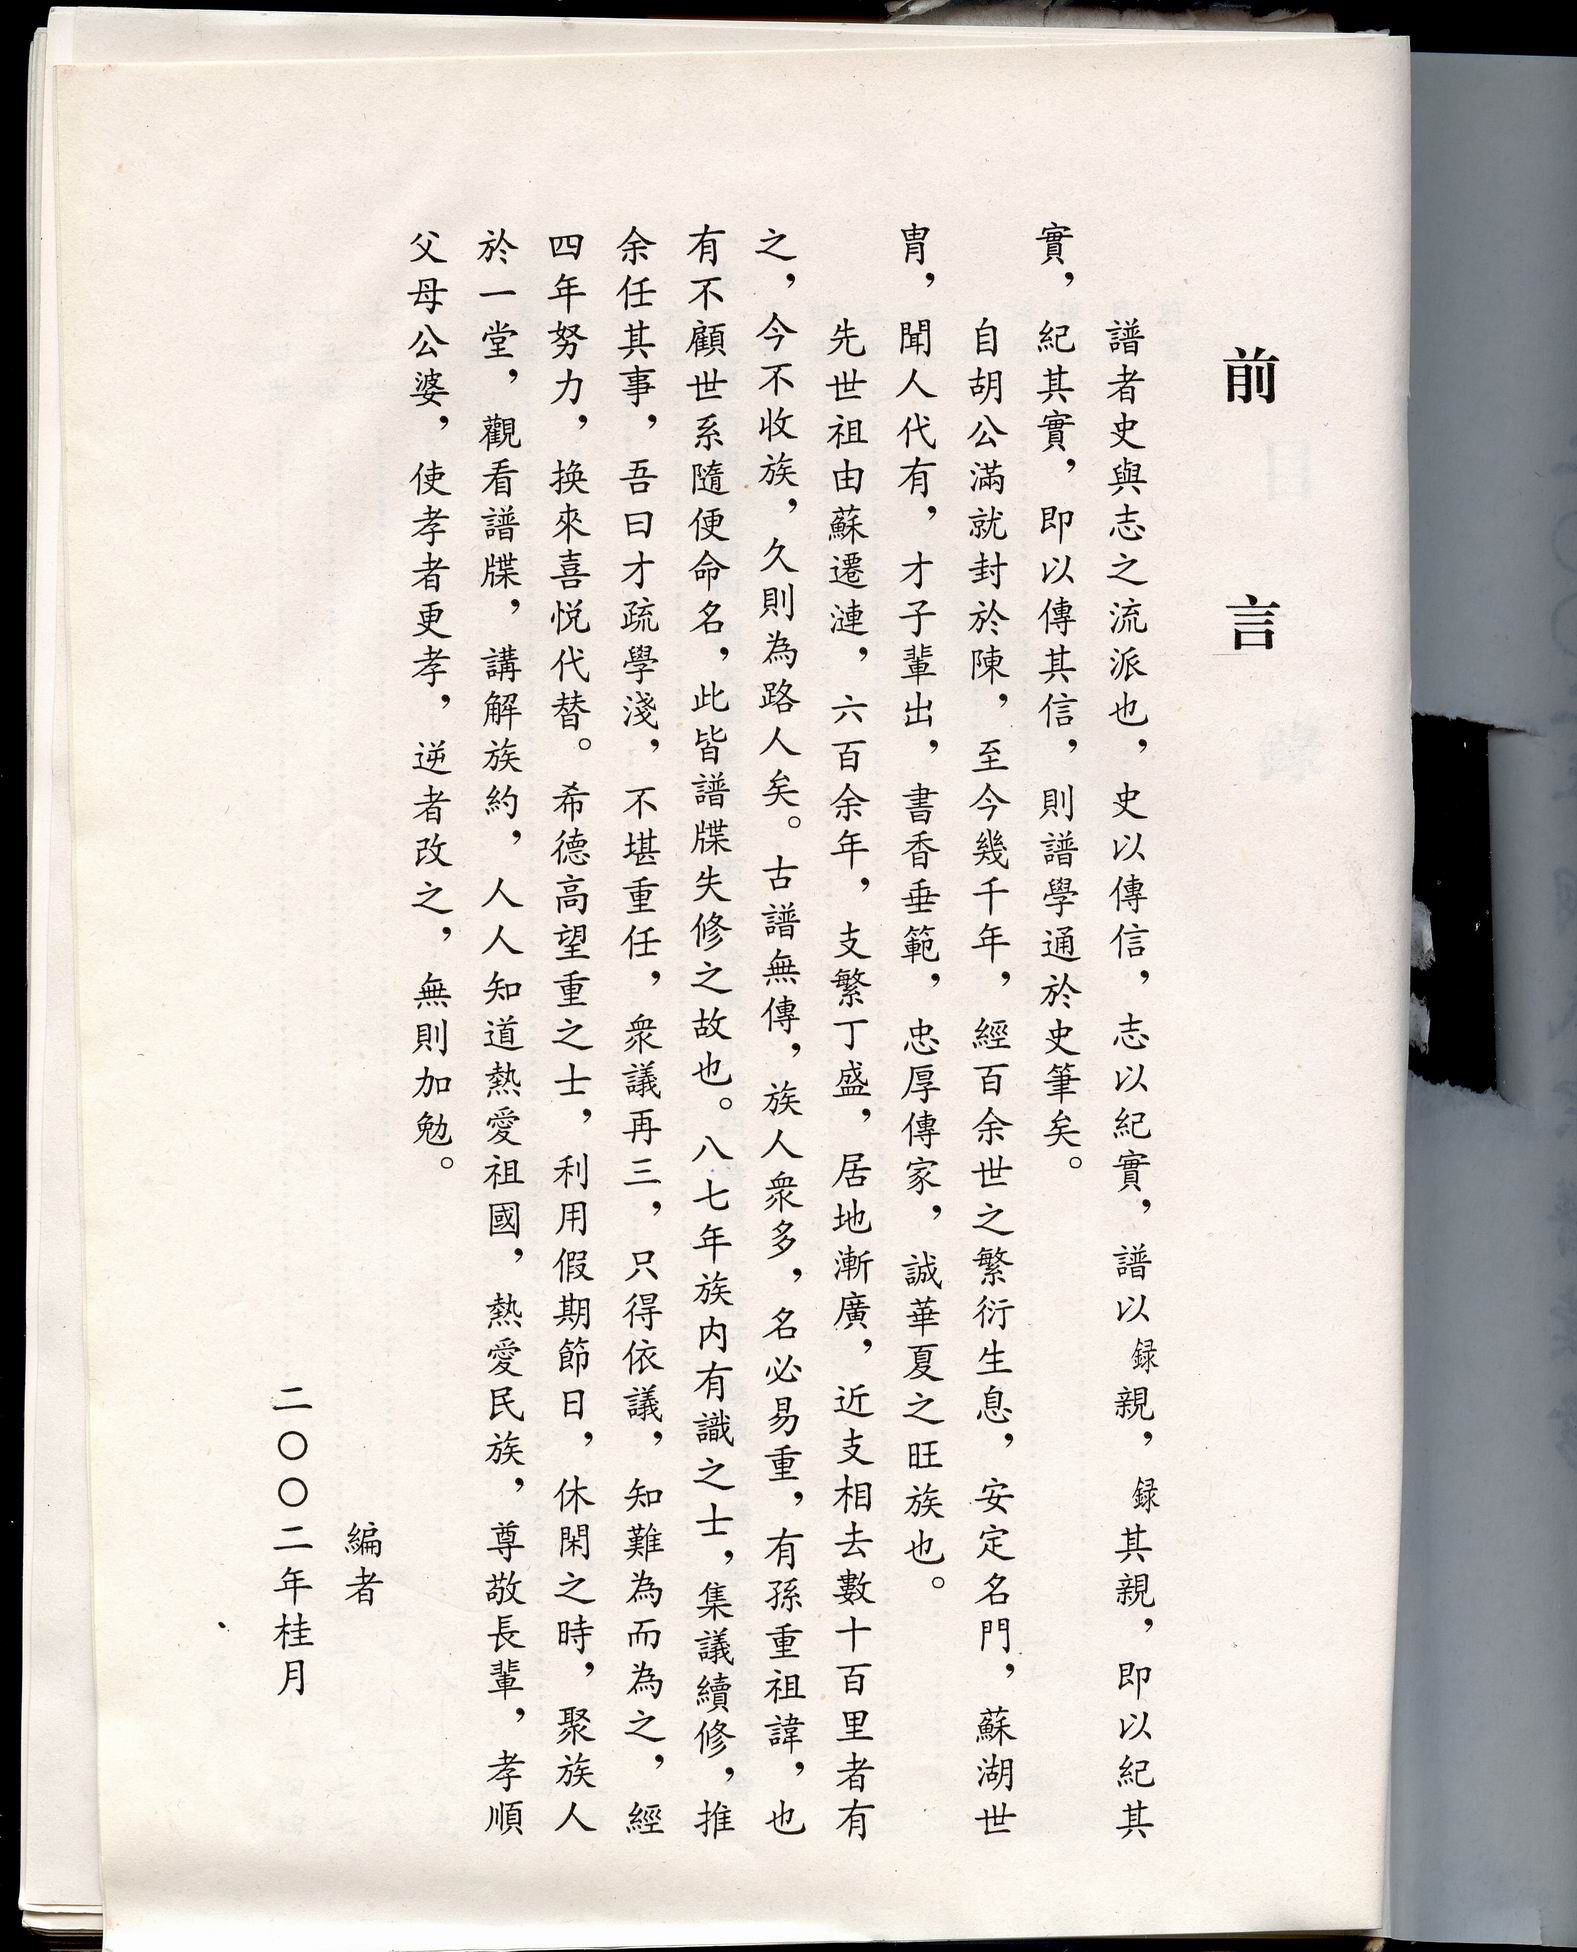 前言
譜者史與志之流派也，史以傳信，志以紀實，譜以録親，録其親，即以紀其
實，紀其實，即以傳其信，則譜學通於史筆矣。
自胡公滿就封於陳，至今幾千年，經百余世之繁衍生息，安定名門，蘇湖世
胄，聞人代有，才子輩出，書香垂範，忠厚傳家，誠華夏之旺族也。
先世祖由蘇遷漣，六百余年，支繁丁盛，居地漸廣，近支相去數十百里者有
之，今不收族，久則為路人矣。古譜無傳，族人衆多，名必易重，有孫重祖諱，也
有不顧世系隨便命名，此皆譜牒失修之故也。八七年族内有識之士，集議續修，推
余任其事，吾曰才疏學淺，不堪重任，衆議再三，只得依議，知難為而為之，經
四年努力，换來喜悦代替。希德高望重之士，利用假期節日，休閑之時，聚族人
於一堂，觀看譜牒，講解族約，人人知道熱愛祖國，熱愛民族，尊敬長輩，孝順
父母公婆，使孝者更孝，逆者改之，無則加勉。
編者
二〇〇二年桂月